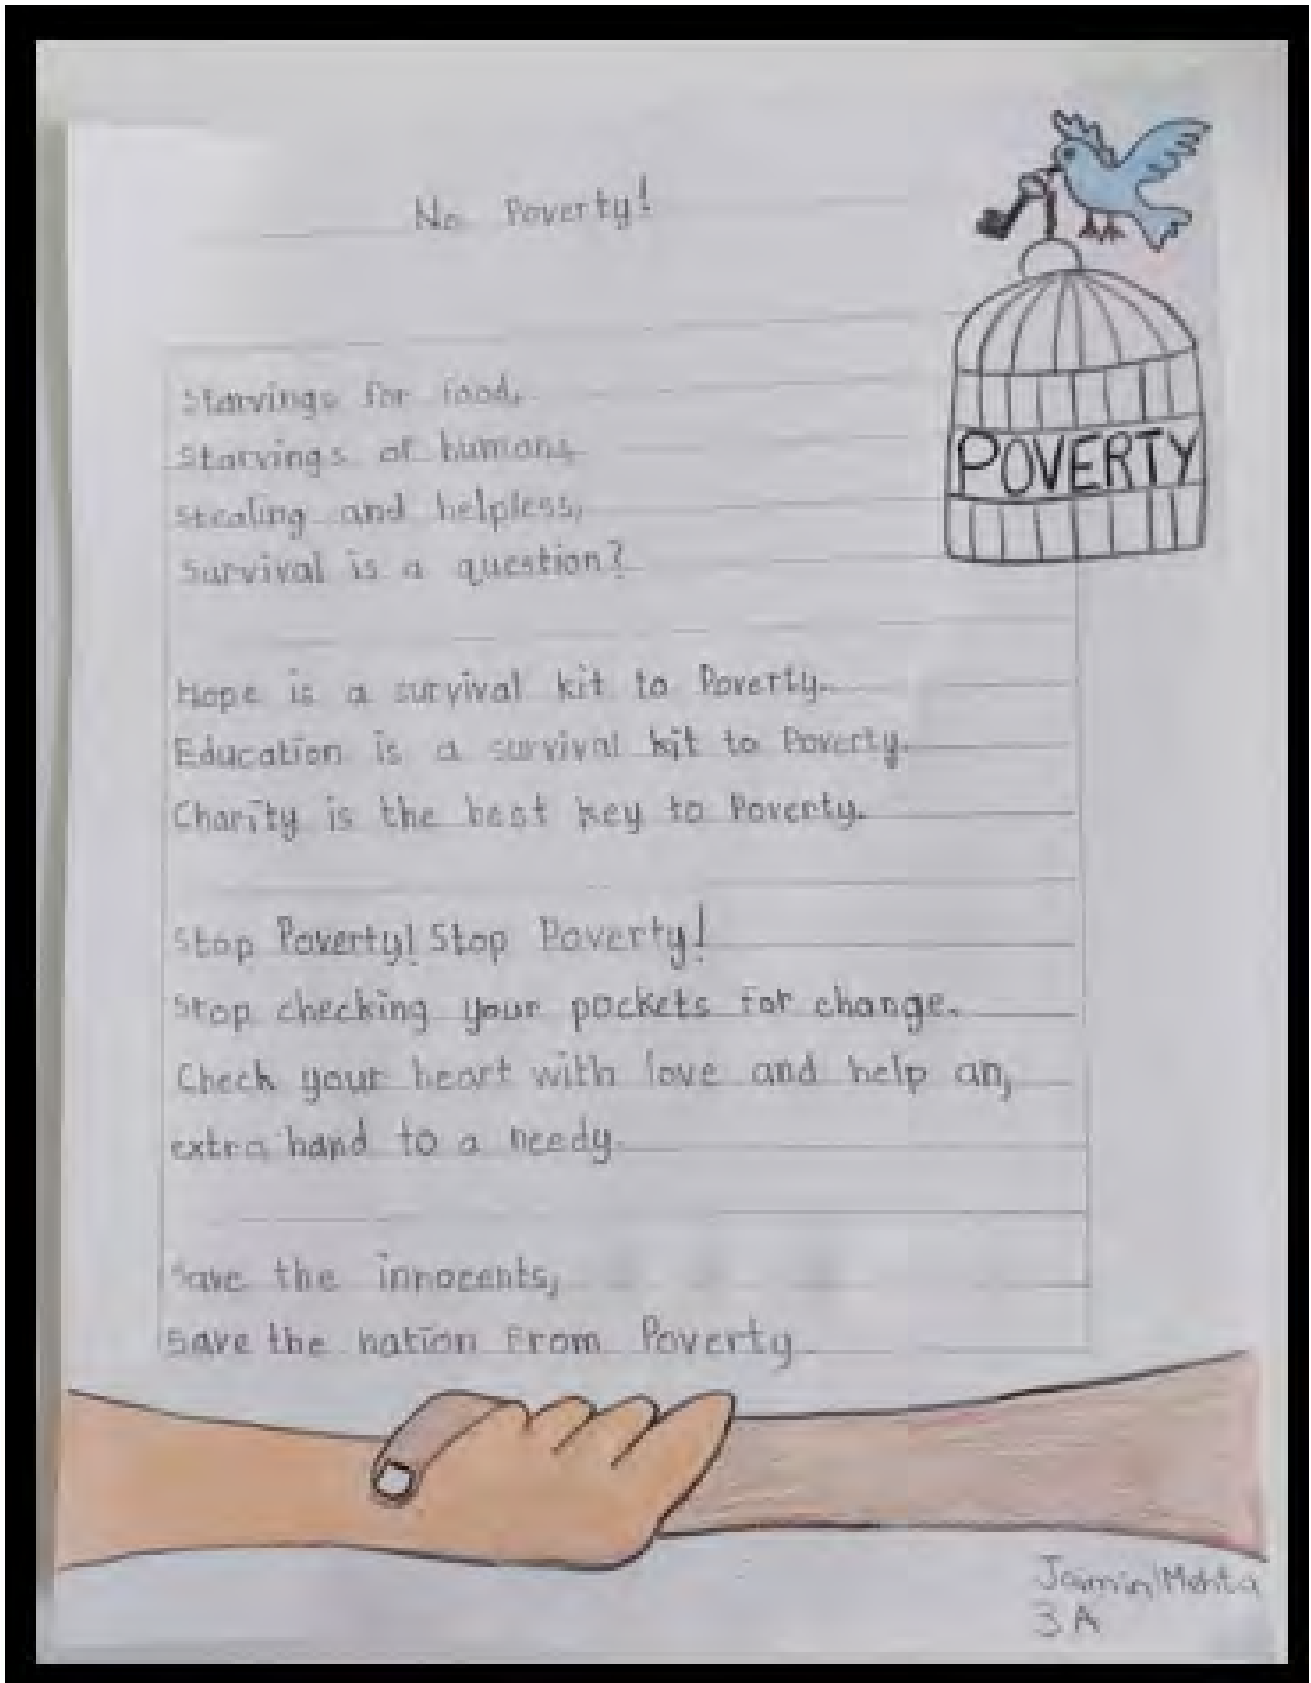 No Poverty!
Starvings for food,
Starvings of humans,
Stealing and helpless,
Survival is a question?
POVERTY
Hope is a survival kit to Poverty.
Education is a survival kit to Poverty.
Charity is the best key to Poverty.
Stop Poverty! Stop Poverty!
Stop checking your pockets for change.
Check your heart with love and help an,
extra hand to a needy.
Save the innocents,
Save the nation From Poverty
Mehta
3 A